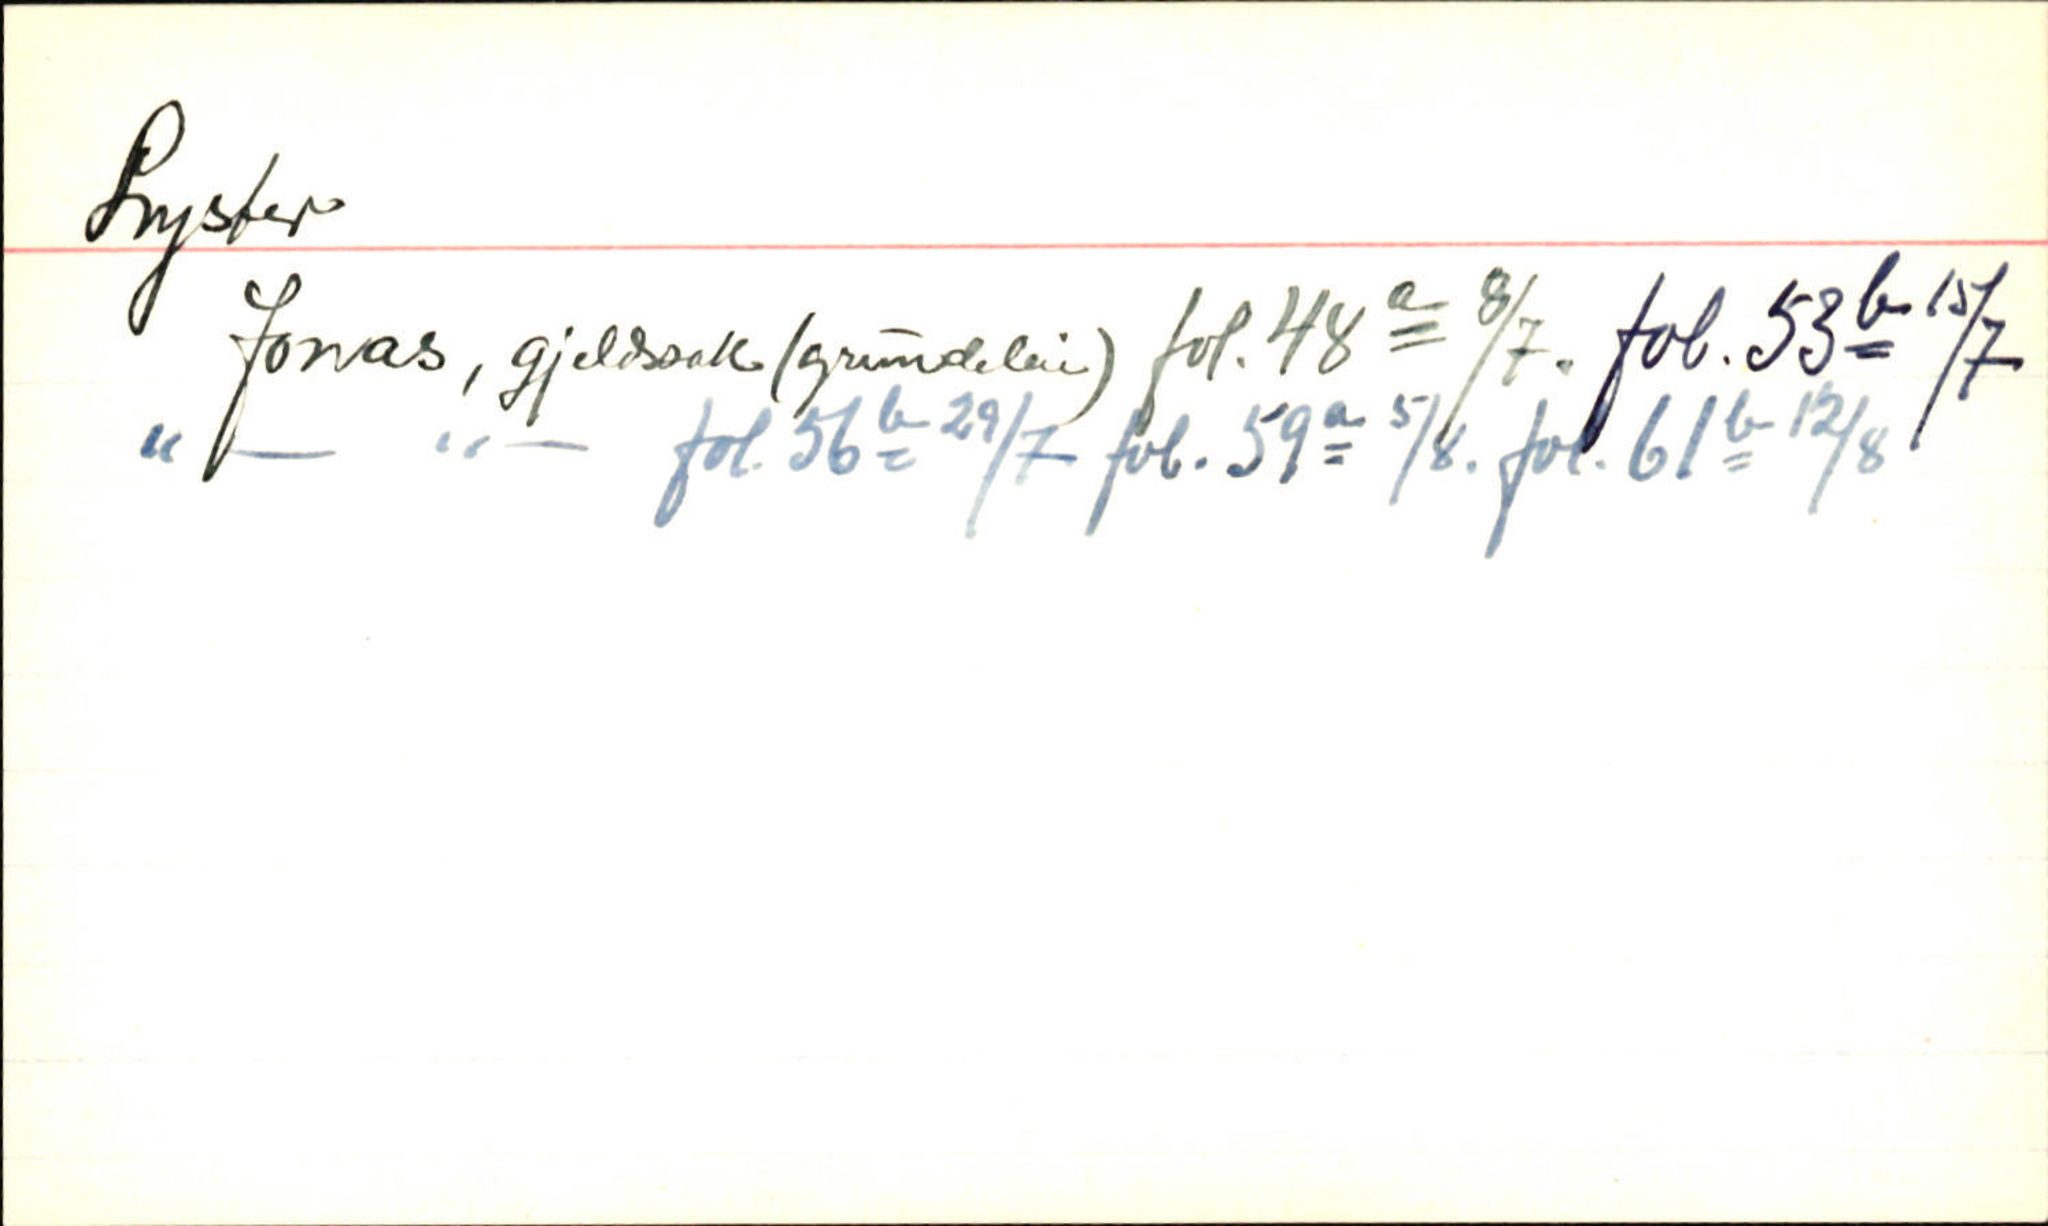 Lyster
Jonas, gjeldssak (grunnleie) fol. 48 a 8/7. fol. 53 b 15/7
" — " — fol. 56 b 29/7 fol. 59 a 5/8. fol. 61 b 12/8